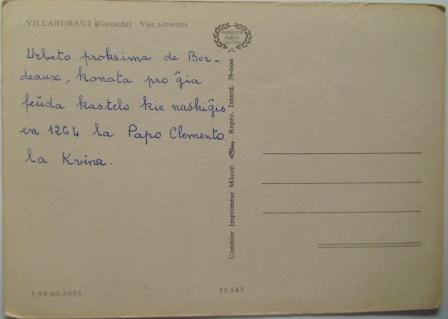 VILLANDRAUT (Gironde) - Vue aérienne
Urbeto proksima de Bor-
deaux, konata pro ĝia
feŭda kastelo kie naskiĝis
en 1264 la Papo Clemento
la Kvina.
Combier Imprimeur Mâcon Repro. Interd. 39-000
3.99.00.5055
33.547